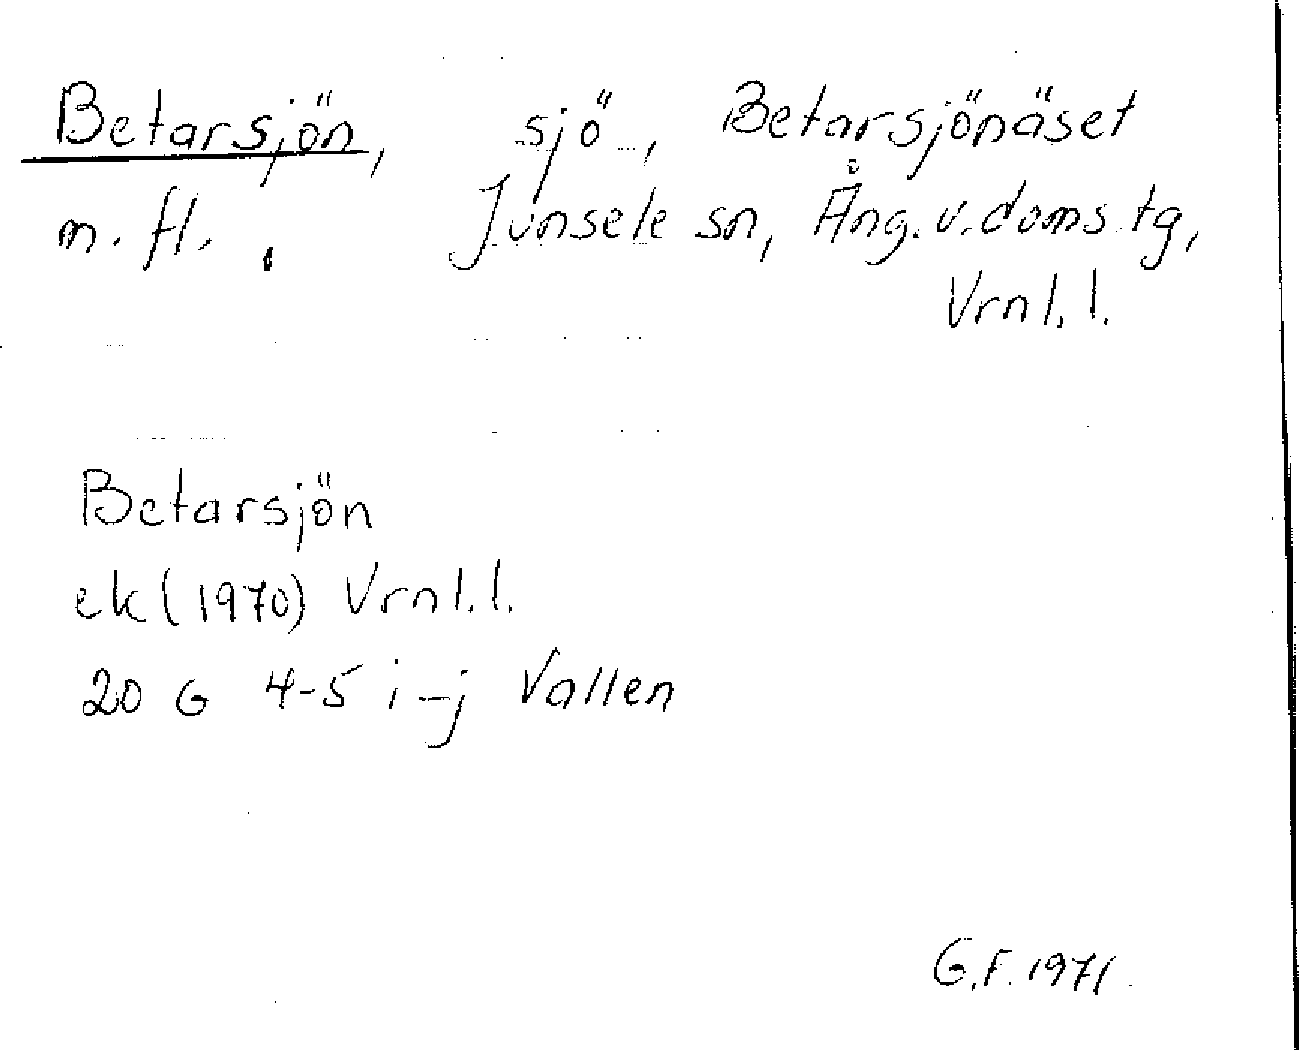 Betarsjön, sjö, Betarsjönäset
m. fl., Junsele sn, Ång. v. doms. tg,
Vrnl. l.
Betarsjön
ek (1970) Vrnl. l.
20 G 4-5 i-j Vallen
G.F. 1971.